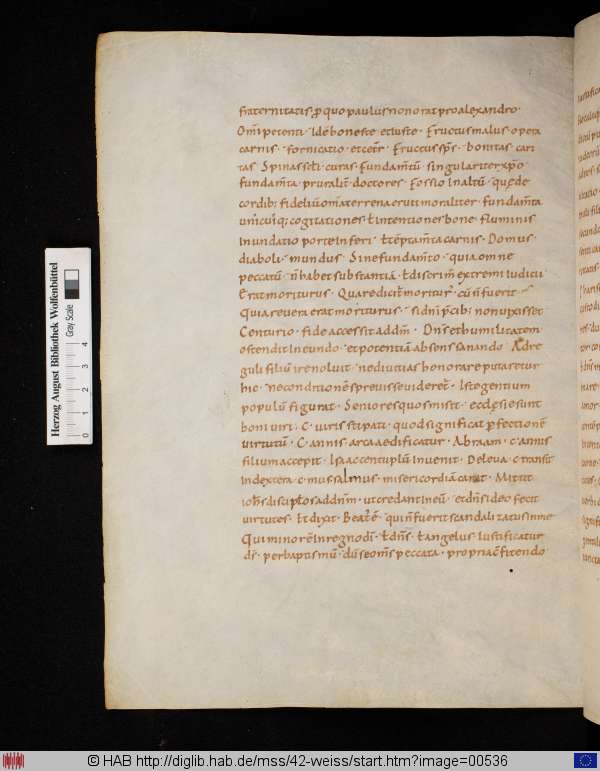 fraternitatis ꝑ quo paulus non orat pro alexandro ·
Om̅i petenti · Id ẽ honeste et iuste · Fructus malus opera
carnis · fornicatio et cet̅ · Fructus sp̅s · bonitas cari
tas Spinas sc̅li curas · Fundam̅tũ singulariter xp̅o ·
fundam̅ta pruraliť doctores · Fossio in altũ · quę de
cordib; fideliũ om̅ia terrena eruit moraliter · fundam̅ta
unicuiq; cogitationes ł intentiones bone · fluminis
inundatio porte inferi · ł tẽptam̅ta carnis · Domus
diaboli · mundus · Sine fundam̅to · quia omne
peccatũ n̅ habet substantiã · ł discrim̅ extremi iudicii
Erat moriturus · Quare dicit̅ moritur cũ n̅ fuerit
Quia reuera erat moriturus · si dn̅i p̅cib; non uixisset
Centurio · fide accessit ad dm̅ · Dn̅s et humilitatem
ostendit in eundo · et potentiã absens sanando · Ad re
guli filiũ ire noluit · ne diuitias honorare putaretur
hic · ne conditionẽs preuisse uideret̅ · Iste gentium
populũ figurat · Seniores quos misit · ecclesię sunt
boni uiri · C · uiris stipati · quod significat ꝑfectionẽ
uirtutũ · C · annis arca aedificatur · Abraam · c · annis
filium accepit · Isaac centuplũ inuenit · De leua · c · transit
in dextera · c · mus salmus · misericordiã canit · Mittit
ioh̅s discipłos ad dn̅m · ut credant in eũ · et dn̅s ideo fecit
uirtutes · Et dixit · Beat̕ ẽ · qui n̅ fuerit scandalizatus in me
Qui minor ẽ in regno di̅ · ł dn̅s · ł angelus · Iustificatur
ds̅ · per baptismũ · dũ se om̅s peccata · propria c̅fitendo
Herzog August Bibliothek Wolfenbüttel
Gray Scale
0 1 2 3 4
© HAB http://diglib.hab.de/mss/42-weiss/start.htm?image=00536